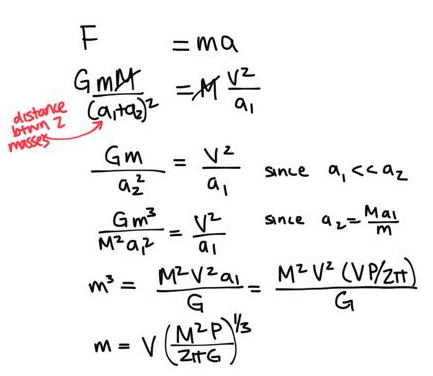 F = ma
GmM/(a₁+a₂)² = M V²/a₁
distance
btwn 2
masses
Gm/a₂² = V²/a₁ since a₁<<a₂
Gm³/M²a₁² = V²/a₁ since a₂=Ma₁/m
m³ = M²V²a₁/G = M²V²(VP/2π)/G
m = V(M²P/2πG)^1/3